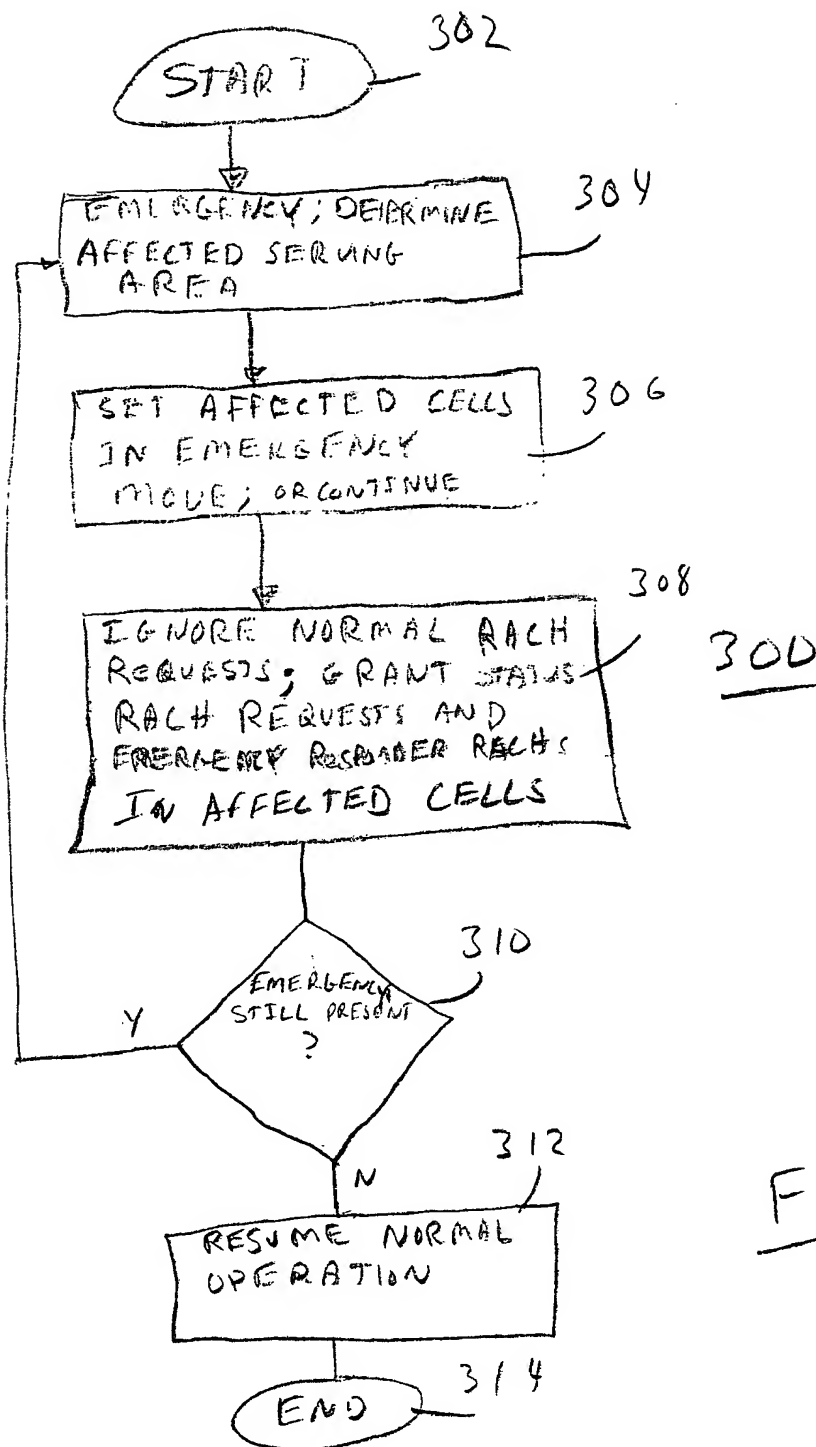 302
START
304
EMERGENCY; DETERMINE
AFFECTED SERVING
AREA
306
SET AFFECTED CELLS
IN EMERGENCY
MODE; OR CONTINUE
308
IGNORE NORMAL RACH
REQUESTS; GRANT STATUS
RACH REQUESTS AND
EMERGENCY RESPONDER RACHS
IN AFFECTED CELLS
300
310
EMERGENCY
STILL PRESENT
?
Y
N
312
RESUME NORMAL
OPERATION
F
314
END